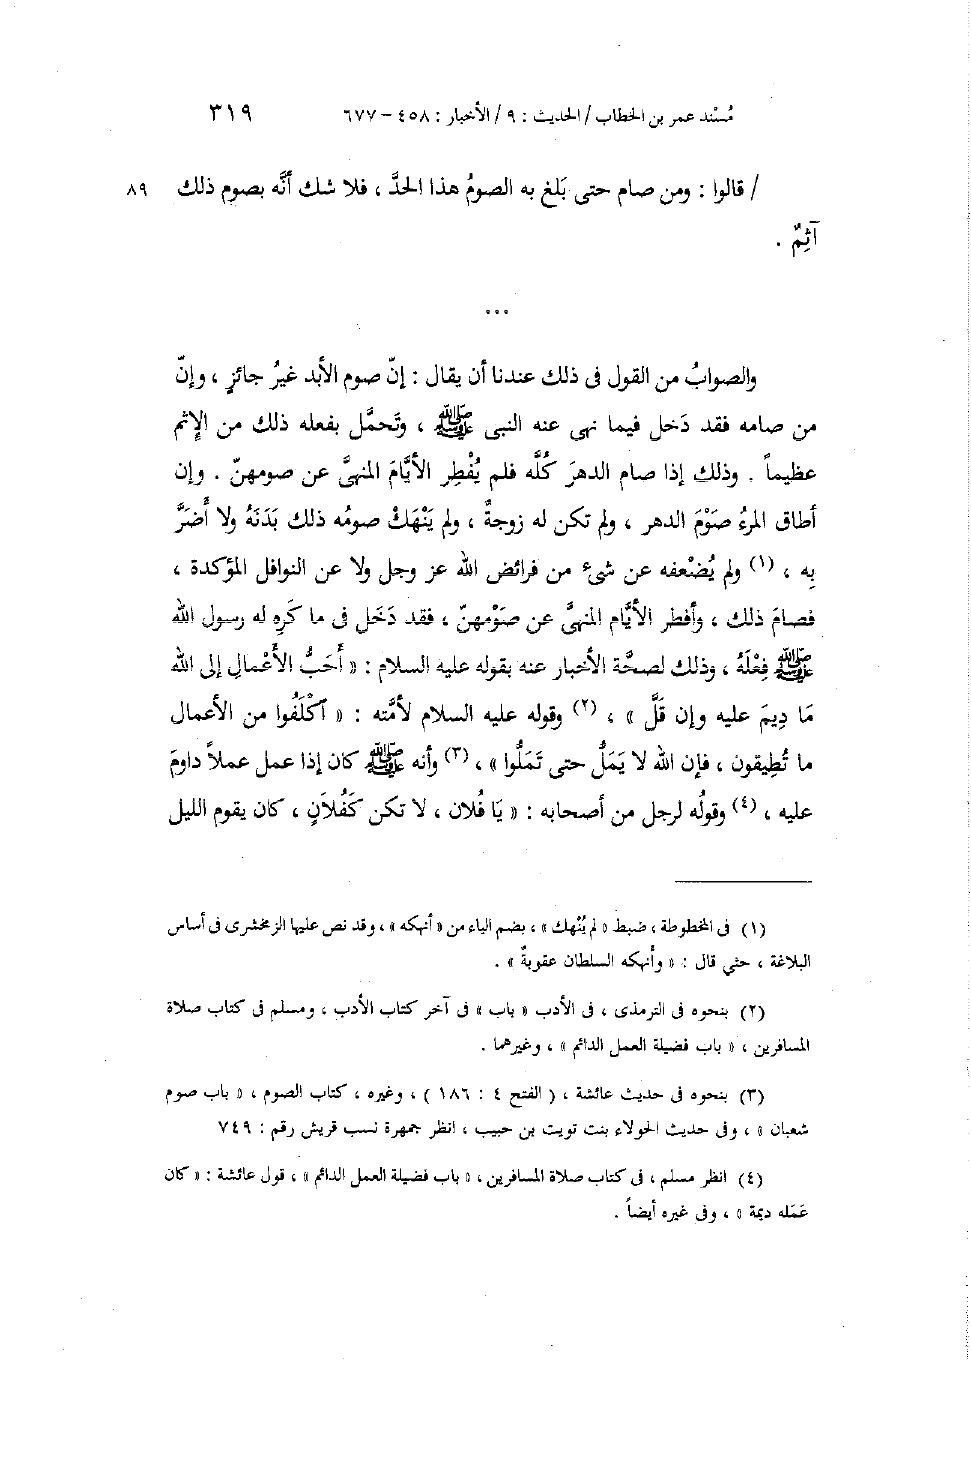 مُسْند عمر بن الخطاب / الحديث : ٩ / الأخبار : ٤٥٨ – ٦٧٧ ٣١٩
/ قالوا : ومن صام حتى بَلغ به الصومُ هذا الحدَّ ، فلا شك أنَّه بصوم ذلك ٨٩
آثِمٌ .
...
والصوابُ من القول فى ذلك عندنا أن يقال : إنّ صوم الأبد غيرُ جائزٍ ، وإنّ
من صامه فقد دَخل فيما نهى عنه النبى ﷺ ، وتَحمَّل بفعله ذلك من الإثم
عظيماً . وذلك إذا صام الدهرَ كُلَّه فلم يُفْطِر الأيَّامَ المنهىَّ عن صومهنّ . وإن
أطاق المرءُ صَوْمَ الدهر ، ولم تكن له زوجةٌ ، ولم يَنْهَكْ صومُه ذلك بَدَنَهُ ولا أُضَرَّ
بِه ، (١) ولم يُضْعفه عن شىء من فرائض الله عز وجل ولا عن النوافل المؤكدة ،
فصامَ ذلك ، وأفطر الأيَّام المنهىَّ عن صَوْمهنّ ، فقد دَخَل فى ما كَرِه له رسول الله
ﷺ فِعْلَهُ ، وذلك لصحَّة الأخبار عنه بقوله عليه السلام : « أَحَبُّ الأَعْمالِ إلى الله
مَا دِيمَ عليه وإن قَلَّ » ، (٢) وقوله عليه السلام لأمَّته : « آكْلَفُوا من الأعمال
ما تُطِيقون ، فإن الله لا يَمَلُّ حتى تَمَلُّوا » ، (٣) وأنه ﷺ كان إذا عمل عملاً داومَ
عليه ، (٤) وقولُه لرجل من أصحابه : « يَا فُلان ، لا تكن كَفُلاَنٍ ، كان يقوم الليل
(١) فى المخطوطة ، ضبط « لم يُنْهك » ، بضم الياء من « أنهكه » ، وقد نص عليها الزمخشرى فى أساس
البلاغة ، حثي قال : « وأنهكه السلطان عقوبةً » .
(٢) بنحوه فى الترمذى ، فى الأدب « باب » فى آخر كتاب الأدب ، ومسلم فى كتاب صلاة
المسافرين ، « باب فضيلة العمل الدائم » ، وغيرهما .
(٣) بنحوه فى حديث عائشة ، ( الفتح ٤ : ١٨٦ ) ، وغيره ، كتاب الصوم ، « باب صوم
شعبان » ، وفى حديث الحولاء بنت تويت بن حبيب ، انظر جمهرة نسب قريش رقم : ٧٤٩
(٤) انظر مسلم ، فى كتاب صلاة المسافرين ، « باب فضيلة العمل الدائم » ، قول عائشة : « كان
عَمَله ديمة » ، وفى غيره أيضاً .